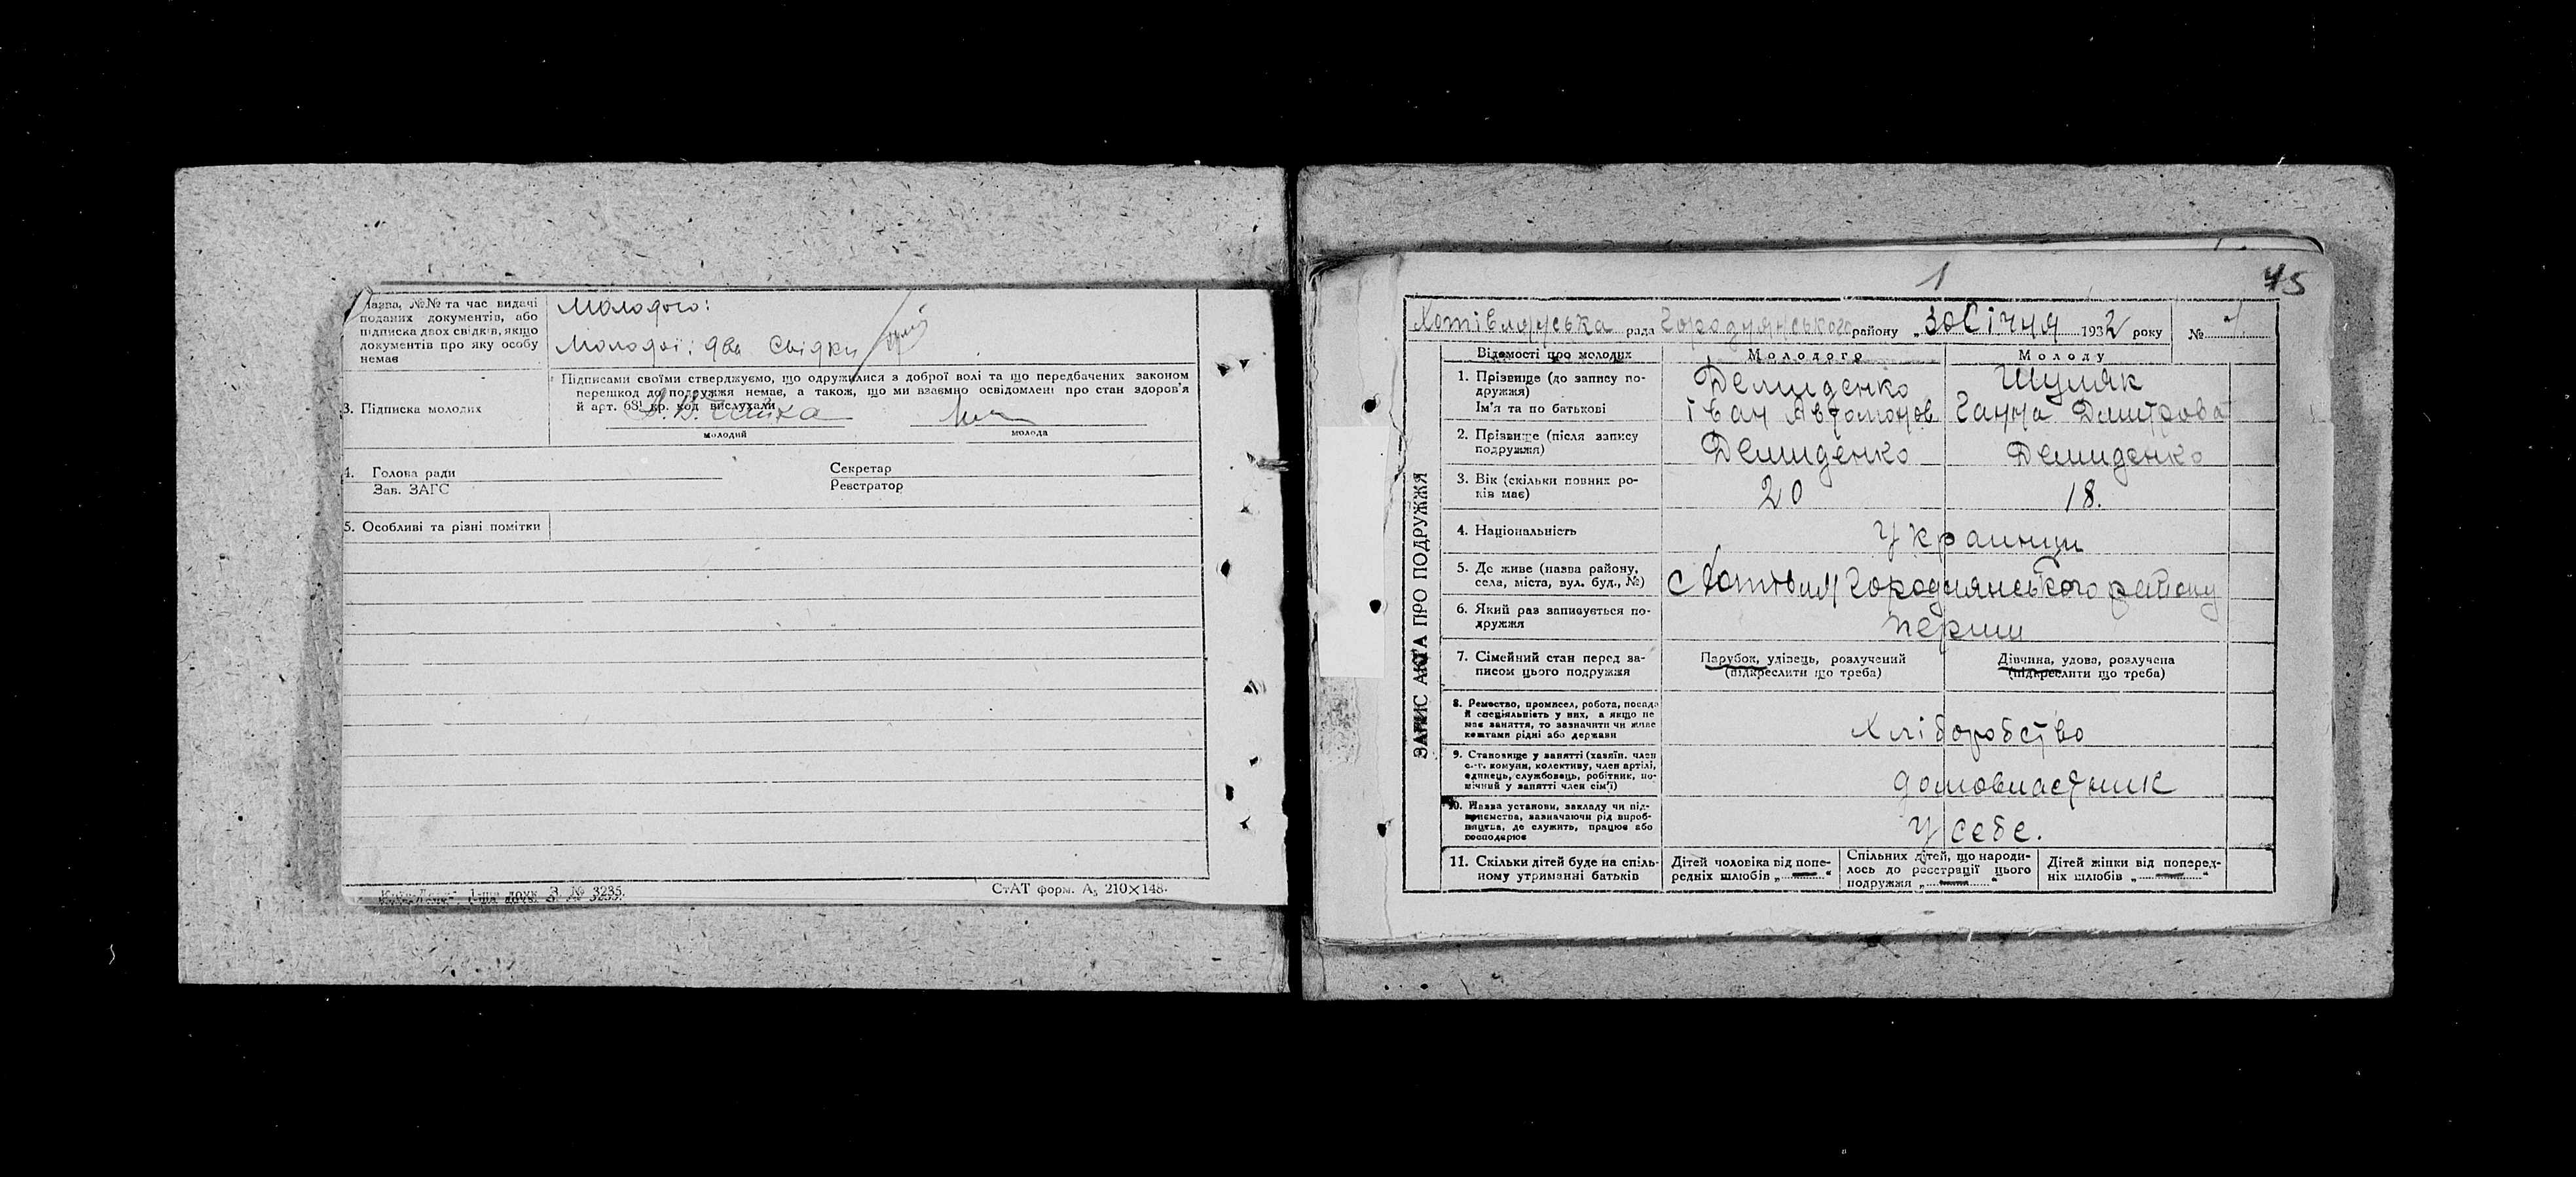 Назва, №№ та час видачі
поданих документів, або
підписка двох свідків, якщо
документів про яку особу
немає
Молодого:
Молодої: два свідки
3. Підписка молодих
Підписами своїми стверджуємо, що одружилися з доброї волі та що передбачених законом
перешкод до подружжя немає, а також, що ми взаємно освідомлені про стан здоров'я
й арт. 68¹ кр. код. вислухали
молодий
молода
4. Голова ради
Зав. ЗАГС
Секретар
Реєстратор
5. Особливі та різні помітки
З. № 3235.
СтАТ форм. А₅ 210×148.
1
45
Хотівлянська рада Городнянського району „30 Січня 1932 року
№ 1
ЗАПИС АКТА ПРО ПОДРУЖЖЯ
Відомості про молодих
Молодого
Молоду
1. Прізвище (до запису по-
дружжя)
Ім'я та по батькові
Демиденко
Іван Автомонов
Шуляк
Ганна Дмитрова
2. Прізвище (після запису
подружжя)
Демиденко
Демиденко
3. Вік (скільки повних ро-
ків має)
20
18.
4. Національність
Українци
5. Де живе (назва району,
села, міста, вул. буд., №)
с Хотівля Городнянського району
6. Який раз записується по-
дружжя
перши
7. Сімейний стан перед за-
писом цього подружжя
Парубок, удівець, розлучений
(підкреслити що треба)
Дівчина, удова, розлучена
(підкреслити що треба)
8. Ремество, промисел, робота, посада
й спеціяльність у них, а якщо не
має заняття, то зазначити чи живе
коштами рідні або держави
Хліборобство
9. Становище у занятті (хазяїн, член
с.-г. комуни, колективу, член артілі,
одинець, службовець, робітник, по-
мічний у занятті член сім'ї)
домовластник
10. Назва установи, закладу чи під-
приємства, зазначаючи рід вироб-
ництва, де служить, працює або
господарює
У себе.
11. Скільки дітей буде на спіль-
ному утриманні батьків
Дітей чоловіка від попе-
редніх шлюбів „ — “
Спільних дітей, що народи-
лось до реєстрації цього
подружжя „ — “
Дітей жінки від поперед-
ніх шлюбів „ — “